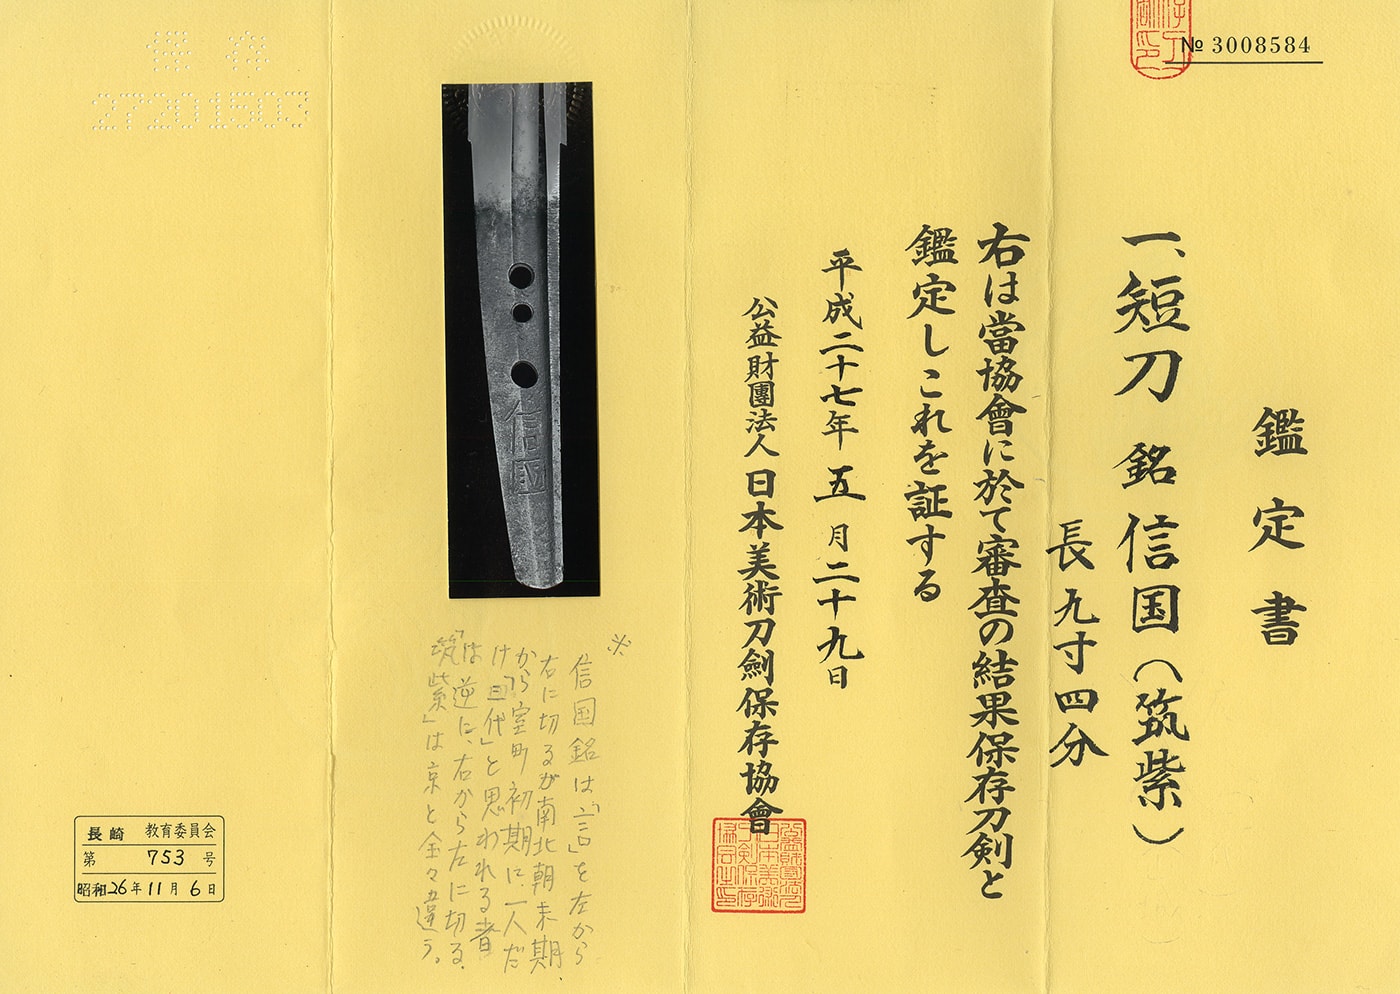 № 3008584
鑑定書
一、短刀 銘 信国(筑紫)
長九寸四分
右は當協會に於て審査の結果保存刀剣と
鑑定しこれを証する
平成二十七年五月二十九日
公益財團法人日本美術刀劍保存協會
信國
※
信国銘は「言」を左から
右に切るが南北朝末期
から室町初期に、一人だ
け「目代」と思われる者
は逆に、右から左に切る。
「筑紫」は京と全々違う。
保存
27201503
長崎 教育委員会
第 753 号
昭和26年11月6日